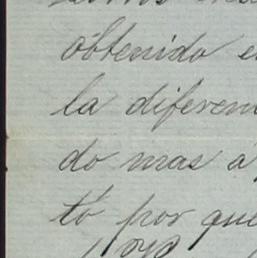 obtenido e
la diferen
do mas a
tó por que